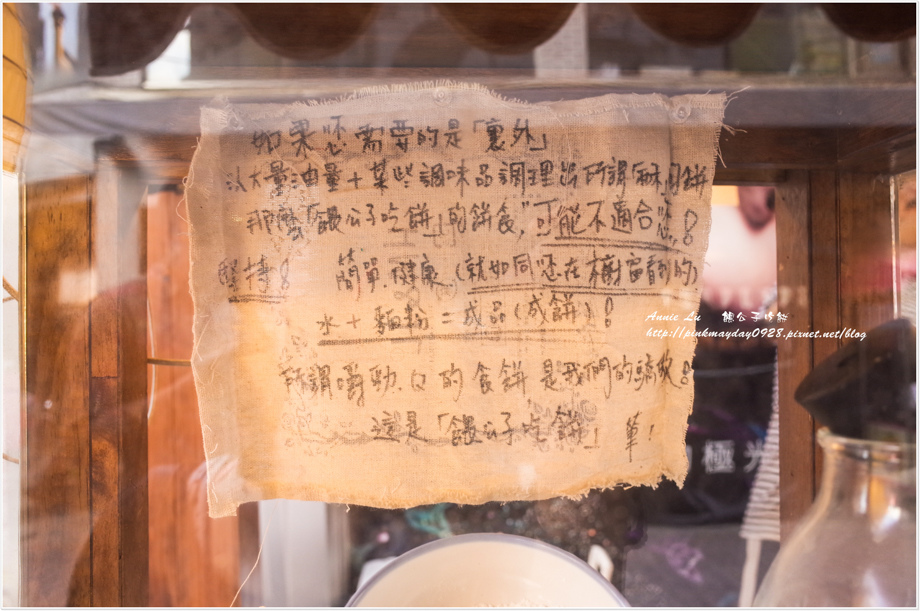 如果您需要的是「裏外」
以大量油量+某些調味品調理出所謂酥月餅
那麼「餵公子吃餅」的餅食,"可能不適合"您!
堅持! 簡單.健康(就如同您在櫥窗看到的)
水+麵粉=成品(成餅)!
所謂嚼勁.Q的食餅是我們的驕傲!
這是「餵公子吃餅」 筆!
Annie Lu
http://pinkmayday0928.pixnet.net/blog
極光